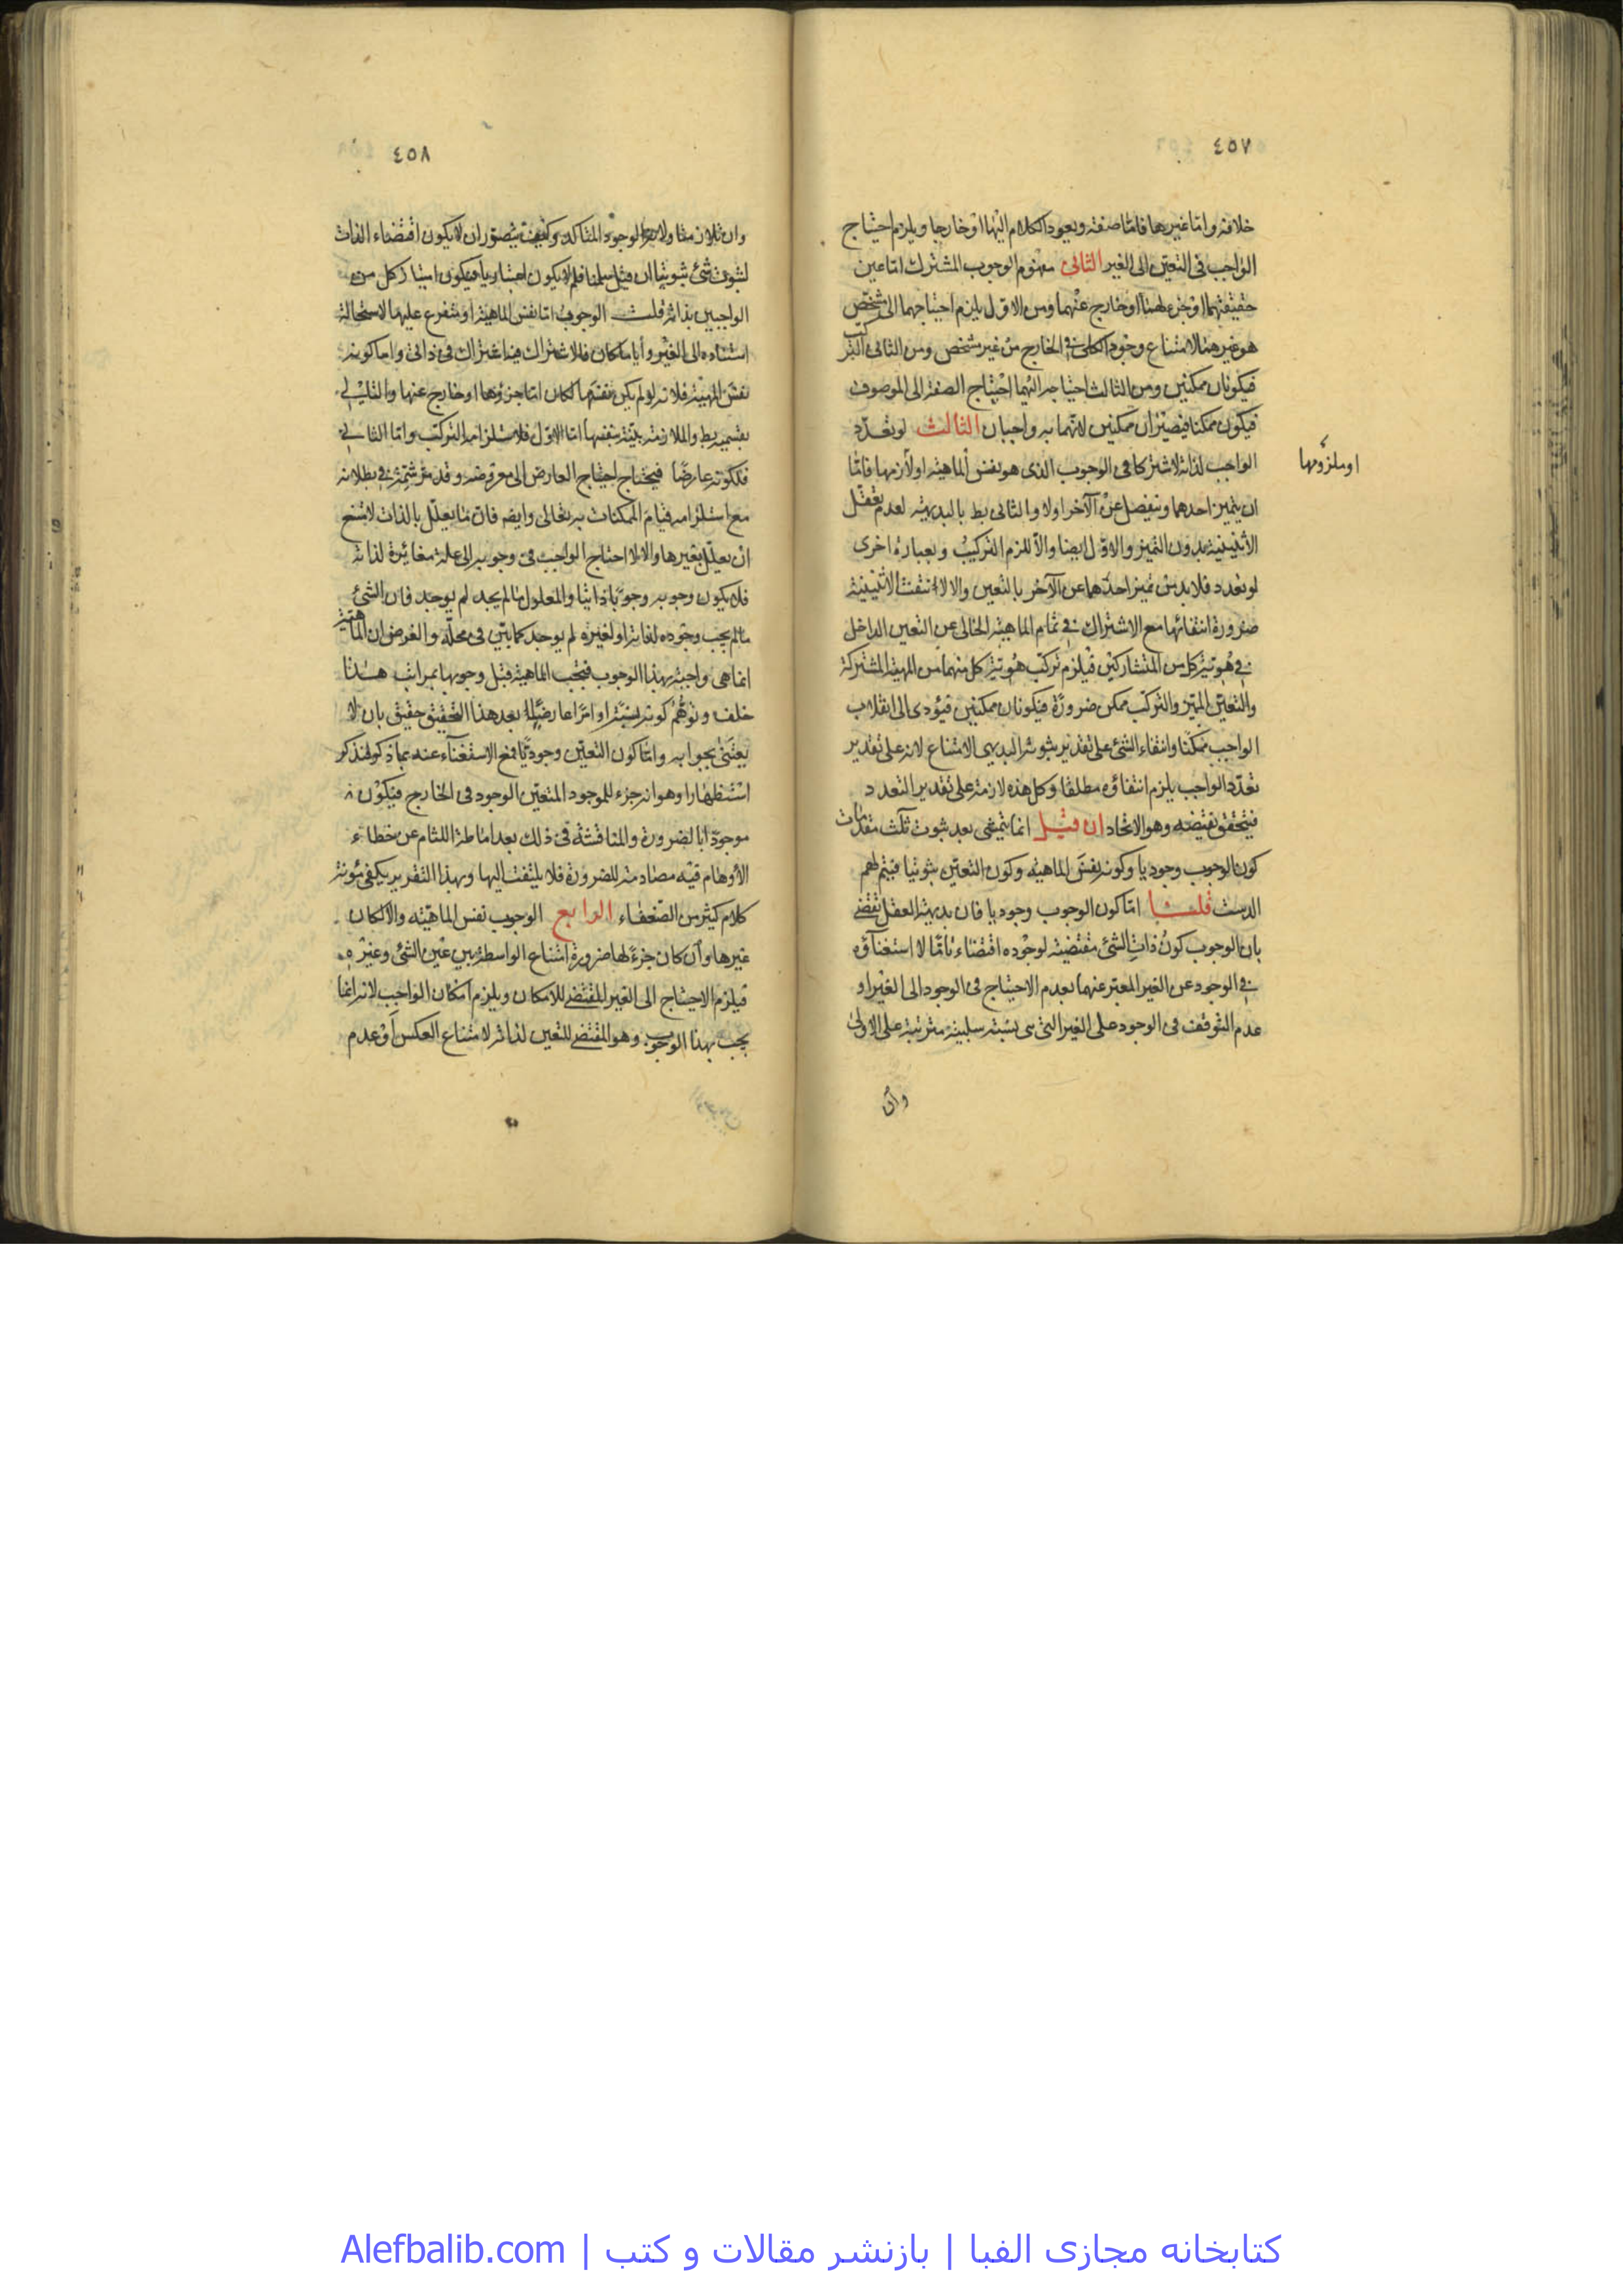 ٤٥٧
خلافه واما غيرها فاما صفة ويعود الكلام اليها او خارجا ويلزم احتياج
الواجب فى التعين الى الغير الثانى مفهوم الوجوب المشترك اما عين
حقيقتهما او جزء لهما او خارج عنهما ومن الاول يلزم احتياجهما الى مشخص
هو غيرهما لامتناع وجود الكلى فى الخارج من غير مشخص ومن الثانى التركب
فيكونان ممكنين ومن الثالث احتياجه اليهما احتياج الصفة الى الموصوف
فيكون ممكنا فيصيران ممكنين لانهما به واجبان الثالث لو تعدد
الواجب لذاته لاشتركا فى الوجوب الذى هو نفس الماهية او لازمها فاما
او ملزومها
ان يتميز احدهما وينفصل عن الآخر اولا والثانى بط بالبديهة لعدم تعقل
الاثنينية بدون التميز والاول ايضا والا لزم التركيب وبعبارة اخرى
لو تعدد فلا بد من تميز احدهما عن الآخر بالتعين والا لانتفت الاثنينية
ضرورة انتفائها مع الاشتراك فى تمام الماهية الخالى عن التعين الداخل
فى هوية كل من المتشاركين فيلزم تركب هوية كل منهما من المهية المشتركة
والتعين المميز والتركب ممكن ضرورة فيكونان ممكنين فيؤدى الى انقلاب
الواجب ممكنا وانتفاء الشئ على تقدير ثبوته البديهى الامتناع لانه على تقدير
تعدد الواجب يلزم انتفاؤه مطلقا وكل هذه لازمة على تقدير التعدد
فيتحقق نقيضه وهو الاتحاد ان قيل انما يتمشى بعد ثبوت ثلث مقدمات
كون الوجوب وجوديا وكونه نفس الماهية وكون التعين ثبوتيا فيتم لهم
الدست قلنا اما كون الوجوب وجوديا فان بديهة العقل تقضى
بان الوجوب كون ذات الشئ مقتضية لوجوده اقتضاء تاما لا استغناؤه
فى الوجود عن الغير المعبر عنهما بعدم الاحتياج فى الوجود الى الغير او
عدم التوقف فى الوجود على الغير التى هى نسبة سلبية مترتبة على الاولى
وان
٤٥٨
لثبوت شئ ثبوتيا ان قيل سلمنا فلم لا يكون اعتباريا فيكون امتياز كل من
الواجبين بذاته قلت الوجوب اما نفس الماهية او متفرع عليها لاستحالة
استناده الى الغير وأيا ما كان فالاشتراك فيه اشتراك فى ذاتى واما كونه
نفس المهية فلانه لو لم يكن نفسها لكان اما جزؤها او خارج عنها والتالى
بقسميه بط والملازمة بينة بنفسها اما الاول فلاستلزامه التركب واما الثانى
فلكونه عارضا فيحتاج احتياج العارض الى معروضه وقد
مع استلزامه قيام الممكنات به تعالى وايضا فان ما يعلل بالذات لا يمتنع
ان يعلل بغيرها والا لاحتاج الواجب فى وجوبه الى علة مغائرة لذاته
فلا يكون وجوبه وجوبا ذاتيا والمعلول ما لم يجب لم يوجد فان الشئ
ما لم يجب وجوده لذاته او لغيره لم يوجد كما بين فى محله والفرض ان الماهية
انما هى واجبة بهذا الوجوب فتجب الماهية قبل وجوبها بمراتب هذا
خلف وتوهم كونه او امرا عارضيا لها بعد هذا التحقيق حقيق بان لا
يعتنى بجوابه واما كون التعين وجوديا فمع الاستغناء عنه بما ذكر
استظهارا وهو انه جزء للموجود المتعين الموجود فى الخارج فيكون
موجودا بالضرورة والمناقشة فى ذلك بعد اماطة اللثام عن خطاء
الأوهام فيه مصادمة للضرورة فلا يلتفت اليها وبهذا التقرير يكفى مؤنة
كلام كثير من الضعفاء الرابع الوجوب نفس الماهية والا لكان
غيرها وان كان جزءً لها ضرورة امتناع الواسطة بين عين الشئ وغيره
فيلزم الاحتياج الى الغير المقتضى للامكان ويلزم امكان الواجب لانه انما
يجب بهذا الوجوب وهو المقتضى للتعين لذاته لامتناع العكس او عدم
کتابخانه مجازی الفبا | بازنشر مقالات و کتب | Alefbalib.com